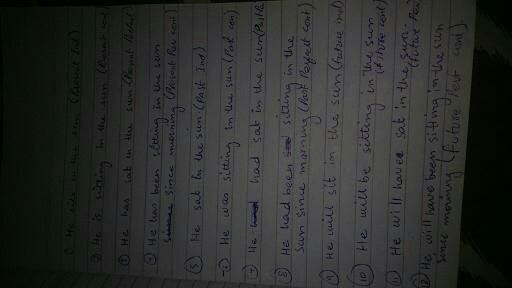 ① He sits in the sun (Present Ind)
② He is sitting in the sun (Present con)
③ He has sat in the sun (Present Perfect)
④ He has been sitting in the sun
since morning (Present Per cont)
⑤ He sat in the sun (Past Ind)
⑥ He was sitting in the sun (Past con)
⑦ He had sat in the sun (Past Per
⑧ He had been sitting in the
sun since morning (Past Perfect cont)
⑨ He will sit in the sun (future ind)
⑩ He will be sitting in the sun
(Future cont)
⑪ He will have sat in the sun.
(future Per
⑫ He will have been sitting in the sun
since morning (Future Perf cont).